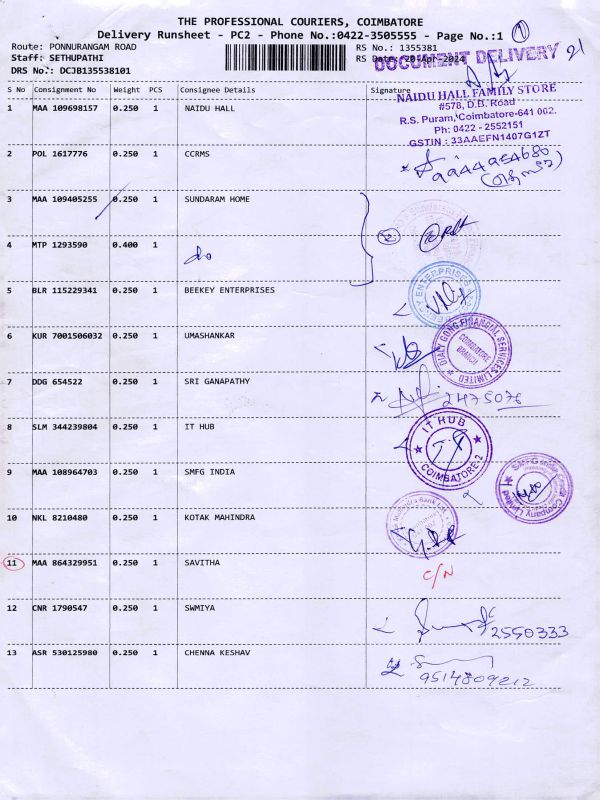 THE PROFESSIONAL COURIERS, COIMBATORE
Delivery Runsheet - PC2 - Phone No.:0422-3505555 - Page No.:1
1
21
Route: PONNURANGAM ROAD
RS No.: 1355381
Staff: SETHUPATHI
RS Date: 20-Apr-2024
DOCUMENT DELIVERY
DRS No.: DCJB135538101
S No Consignment No Weight PCS Consignee Details Signature
1 MAA 109698157 0.250 1 NAIDU HALL
NAIDU HALL FAMILY STORE
#578, D.B. Road
R.S. Puram, Coimbatore-641 002.
Ph: 0422 - 2552151
GSTIN : 33AAEFN1407G1ZT
2 POL 1617776 0.250 1 CCRMS
3 MAA 109405255 0.250 1 SUNDARAM HOME
2
4 MTP 1293590 0.400 1 do
5 BLR 115229341 0.250 1 BEEKEY ENTERPRISES
6 KUR 7001506032 0.250 1 UMASHANKAR
COIMBATORE BRANCH
FINANCIAL SERVICES LIMITED
7 DDG 654522 0.250 1 SRI GANAPATHY
2475076
8 SLM 344239804 0.250 1 IT HUB
IT HUB
COIMBATORE-2
9 MAA 108964703 0.250 1 SMFG INDIA
SMFG India Credit Company Limited
10 NKL 8210480 0.250 1 KOTAK MAHINDRA
Mahindra Bank Ltd
11 MAA 864329951 0.250 1 SAVITHA
C/N
12 CNR 1790547 0.250 1 SWMIYA
2550333
13 ASR 530125980 0.250 1 CHENNA KESHAV
9514809212